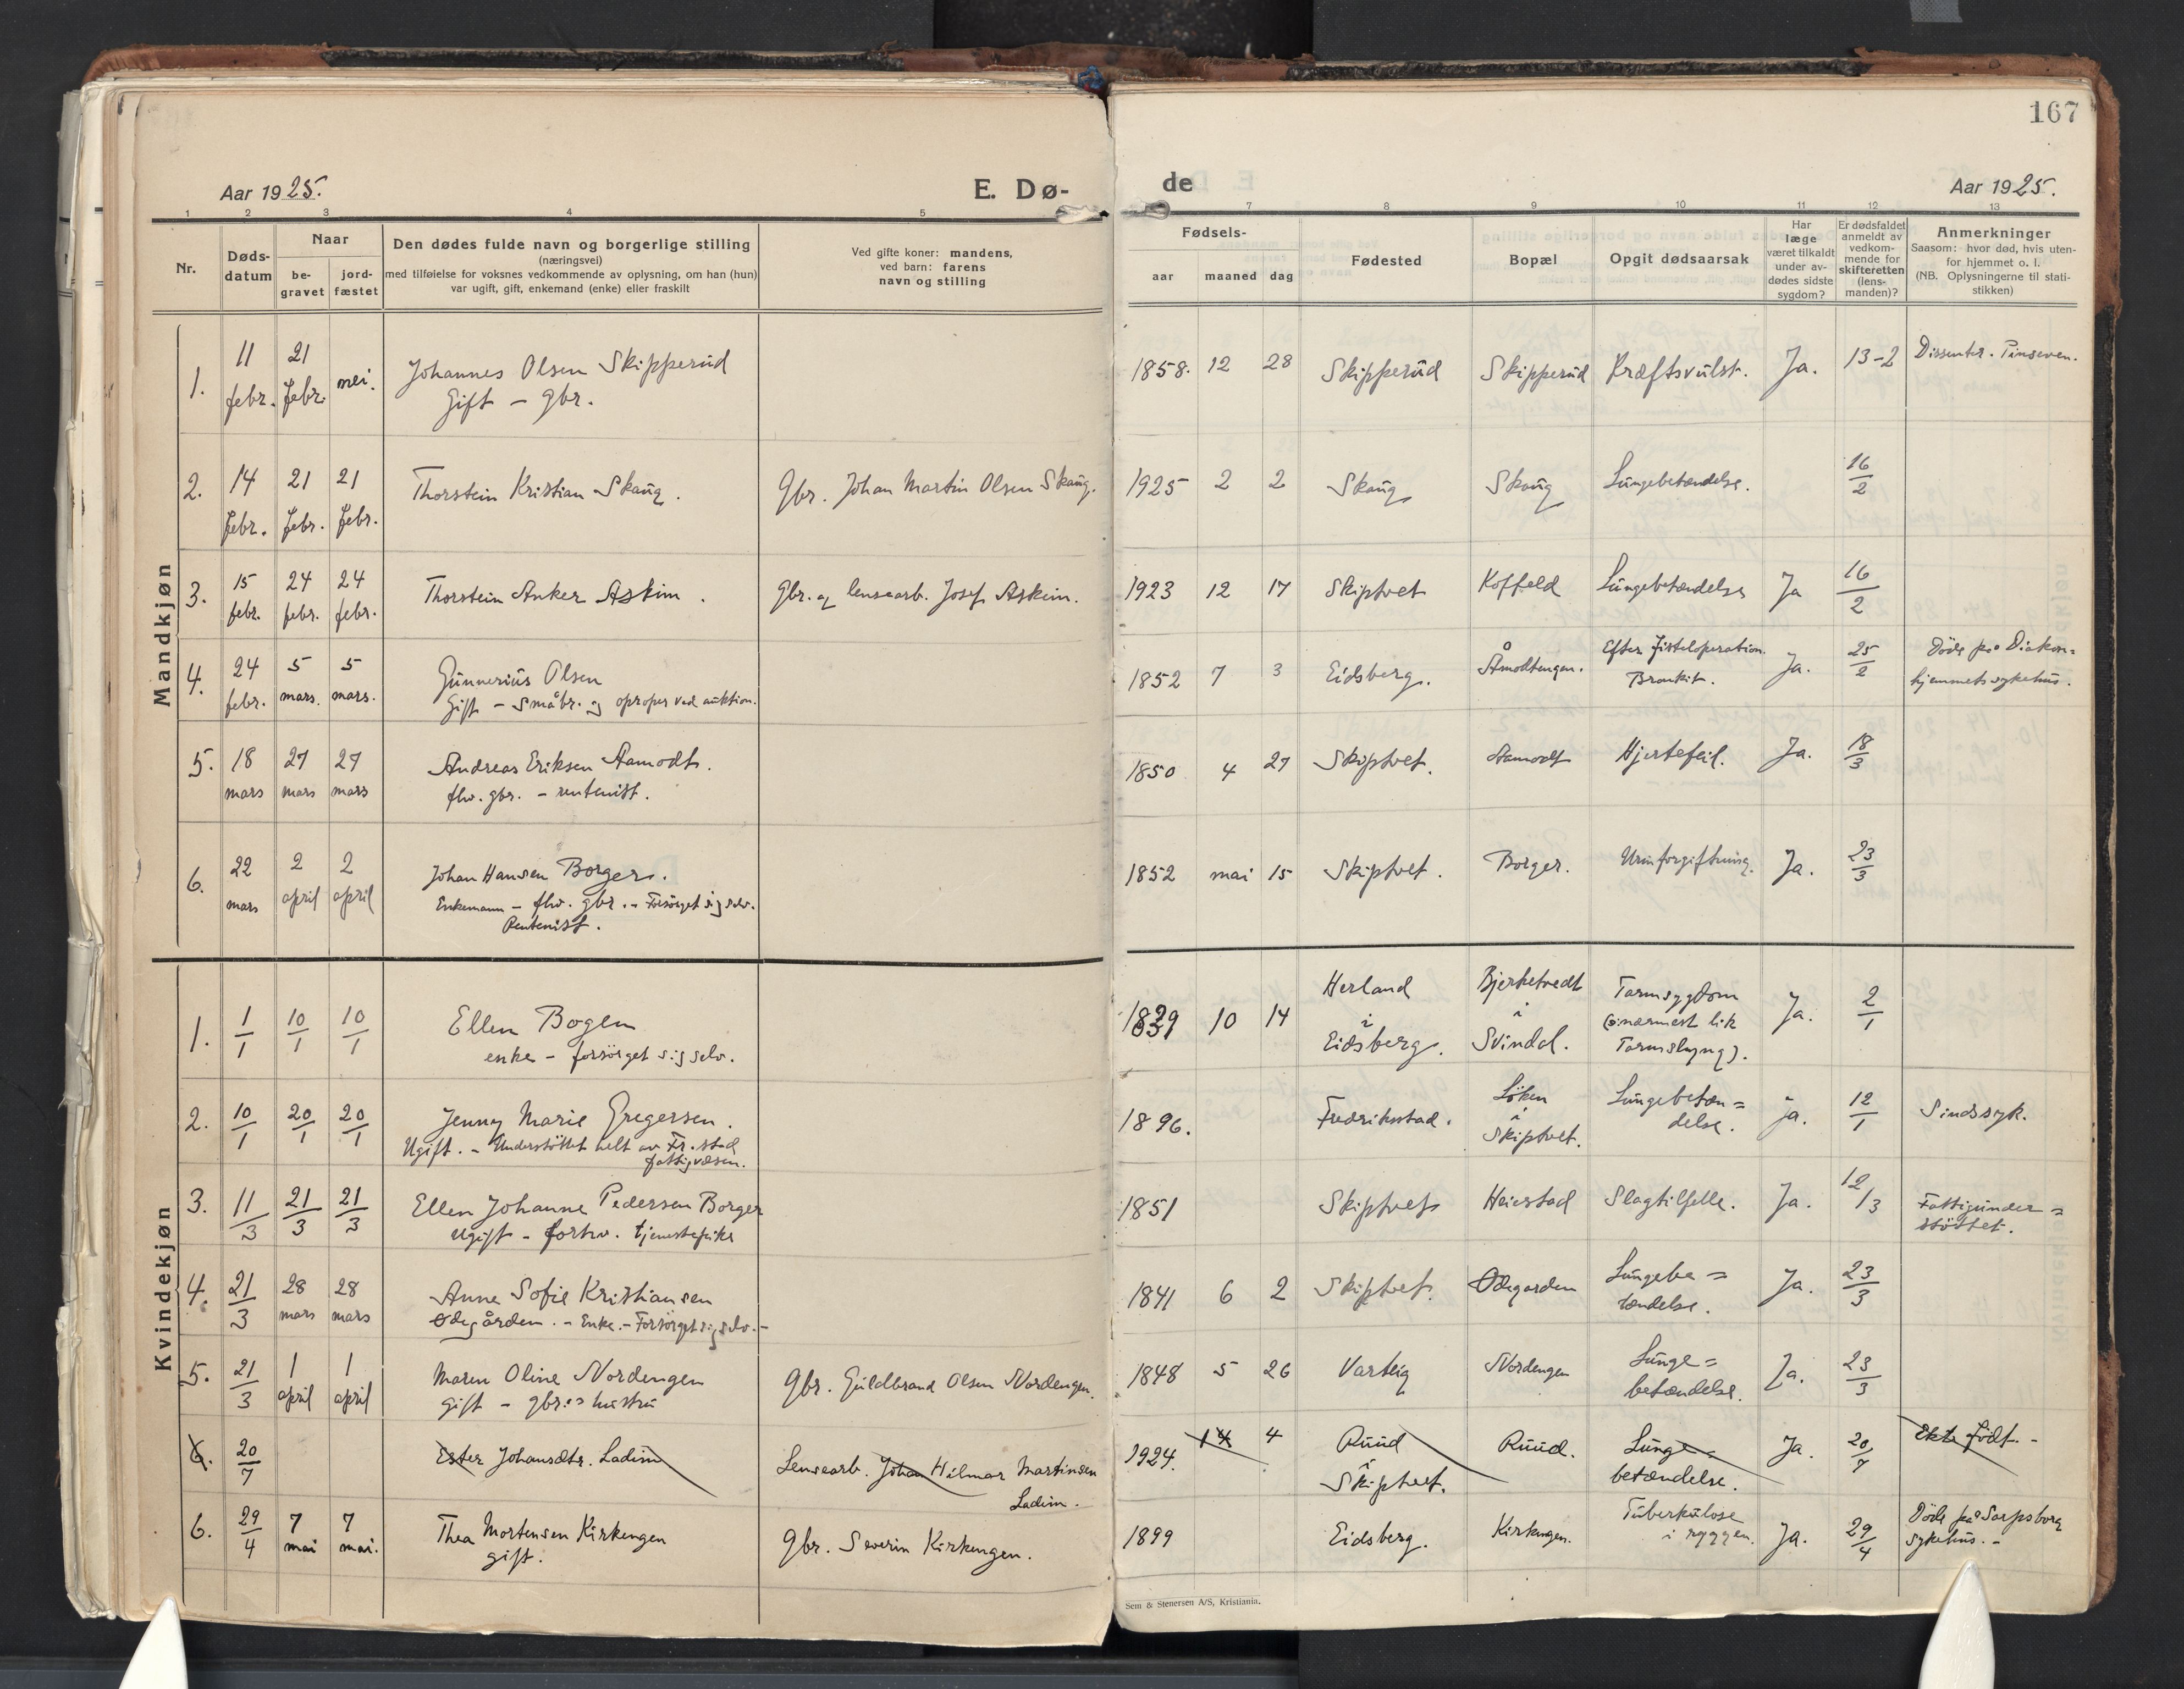 167
Aar 1925.
E. Dø-
de
Aar 1925.
1 2 3 4 5 7 8 9 10 11 12 13
Nr.
Døds-
datum
Naar
be-
gravet
jord-
fæstet
Den dødes fulde navn og borgerlige stilling
(næringsvei)
med tilføielse for voksnes vedkommende av oplysning, om han (hun)
var ugift, gift, enkemand (enke) eller fraskilt
Ved gifte koner: mandens,
ved barn: farens
navn og stilling
Fødsels-
aar maaned dag
Fødested
Bopæl
Opgit dødsaarsak
Har
læge
været tilkaldt
under av-
dødes sidste
sygdom?
Er dødsfaldet
anmeldt av
vedkom-
mende for
skifteretten
(lens-
manden)?
Anmerkninger
Saasom: hvor død, hvis uten-
for hjemmet o. l.
(NB. Oplysningerne til stati-
stikken)
Mandkjøn
1. 11 febr. 21 febr. nei.
Johannes Olsen Skipperud
Gift - gbr.
1858. 12 28 Skipperud Skipperud Kræftsvulst. Ja. 13-2 Dissenter. Pinseven.
2. 14 febr. 21 febr. 21 febr.
Thorstein Kristian Skaug.
Gbr. Johan Martin Olsen Skaug.
1925 2 2 Skaug Skaug Lungebetændelse. 16/2
3. 15 febr. 24 febr. 24 febr.
Thorstein Anker Askim.
Gbr. og lensearb. Josef Askim.
1923 12 17 Skiptvet Koffeld Lungebetændelse Ja 16/2
4. 24 febr. 5 mars. 5 mars.
Gunnerius Olsen
Gift - småbr. og oproper ved auktion.
1852 7 3 Eidsberg. Åmodtengen. Efter fisteloperation.
Bronkit. Ja. 25/2 Døde på Diakon=
hjemmets sykehus.
5. 18 mars 27 mars 27 mars
Andreas Eriksen Aamodt.
fhv. gbr. - rentenist.
1850 4 27 Skiptvet. Aamodt Hjertefeil. Ja. 18/3
6. 22 mars 2 april 2 april
Johan Hansen Borger.
Enkemann - fhv. gbr. - Forsørget sig selv.
Rentenist.
1852 mai 15 Skiptvet. Borger. Urinforgiftning. Ja. 23/3
Kvindekjøn
1. 1/1 10/1 10/1
Ellen Bogen
enke - forsørget sig selv.
1839 10 14 Herland
i
Eidsberg.
Bjerketvedt
i
Svindal.
Tarmsygdom
(nærmest lik
Tarmslyng).
Ja. 2/1
2. 10/1 20/1 20/1
Jenny Marie Gregersen.
Ugift. - Understøttet helt av Fr.stad
fattigvæsen.
1896. Fredrikstad.
Løken
i
Skiptvet.
Lungebetæn=
delse.
ja. 12/1 Sindssyk.
3. 11/3 21/3 21/3
Ellen Johanne Pedersen Borger
Ugift - forhv. tjenestepike
1851 Skiptvet Heiestad Slagtilfelle. Ja. 12/3 Fattigunder=
støttet.
4. 21/3 28 mars 28 mars
Anne Sofie Kristiansen
Ødegården. - Enke. - Forsørget sig selv. -
1841 6 2 Skiptvet. Ødegarden Lungebe=
tændelse. Ja. 23/3
5. 21/3 1 april 1 april
Maren Oline Nordengen
Gift - gbr.s hustru
Gbr. Guldbrand Olsen Nordengen.
1848 5 26 Varteig Nordengen Lunge=
betændelse. Ja. 23/3
6. 20/7
Ester Johansdtr. Ladim
Lensearb. Johan Hilmar Martinsen
Ladim.
1924. 4 Ruud
i
Skiptvet.
Ruud. Lunge=
betændelse. Ja. 20/7 Ekte født. -
6. 29/4 7 mai 7 mai.
Thea Mortensen Kirkengen
gift.
Gbr. Severin Kirkengen.
1899 Eidsberg. Kirkengen. Tuberkulose
i ryggen. Ja. 29/4 Døde på Sarpsborg
sykehus. -
Sem & Stenersen A/S, Kristiania.